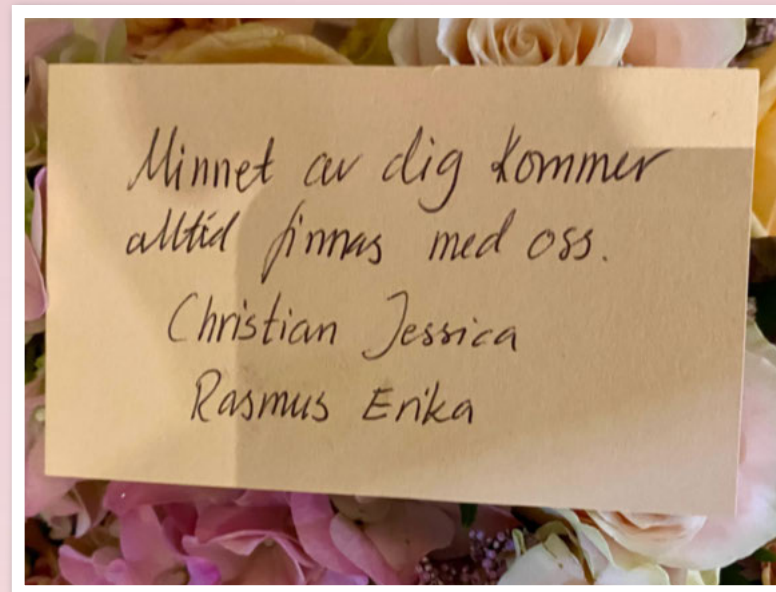 Minnet av dig kommer
alltid finnas med oss.
Christian Jessica
Rasmus Erika